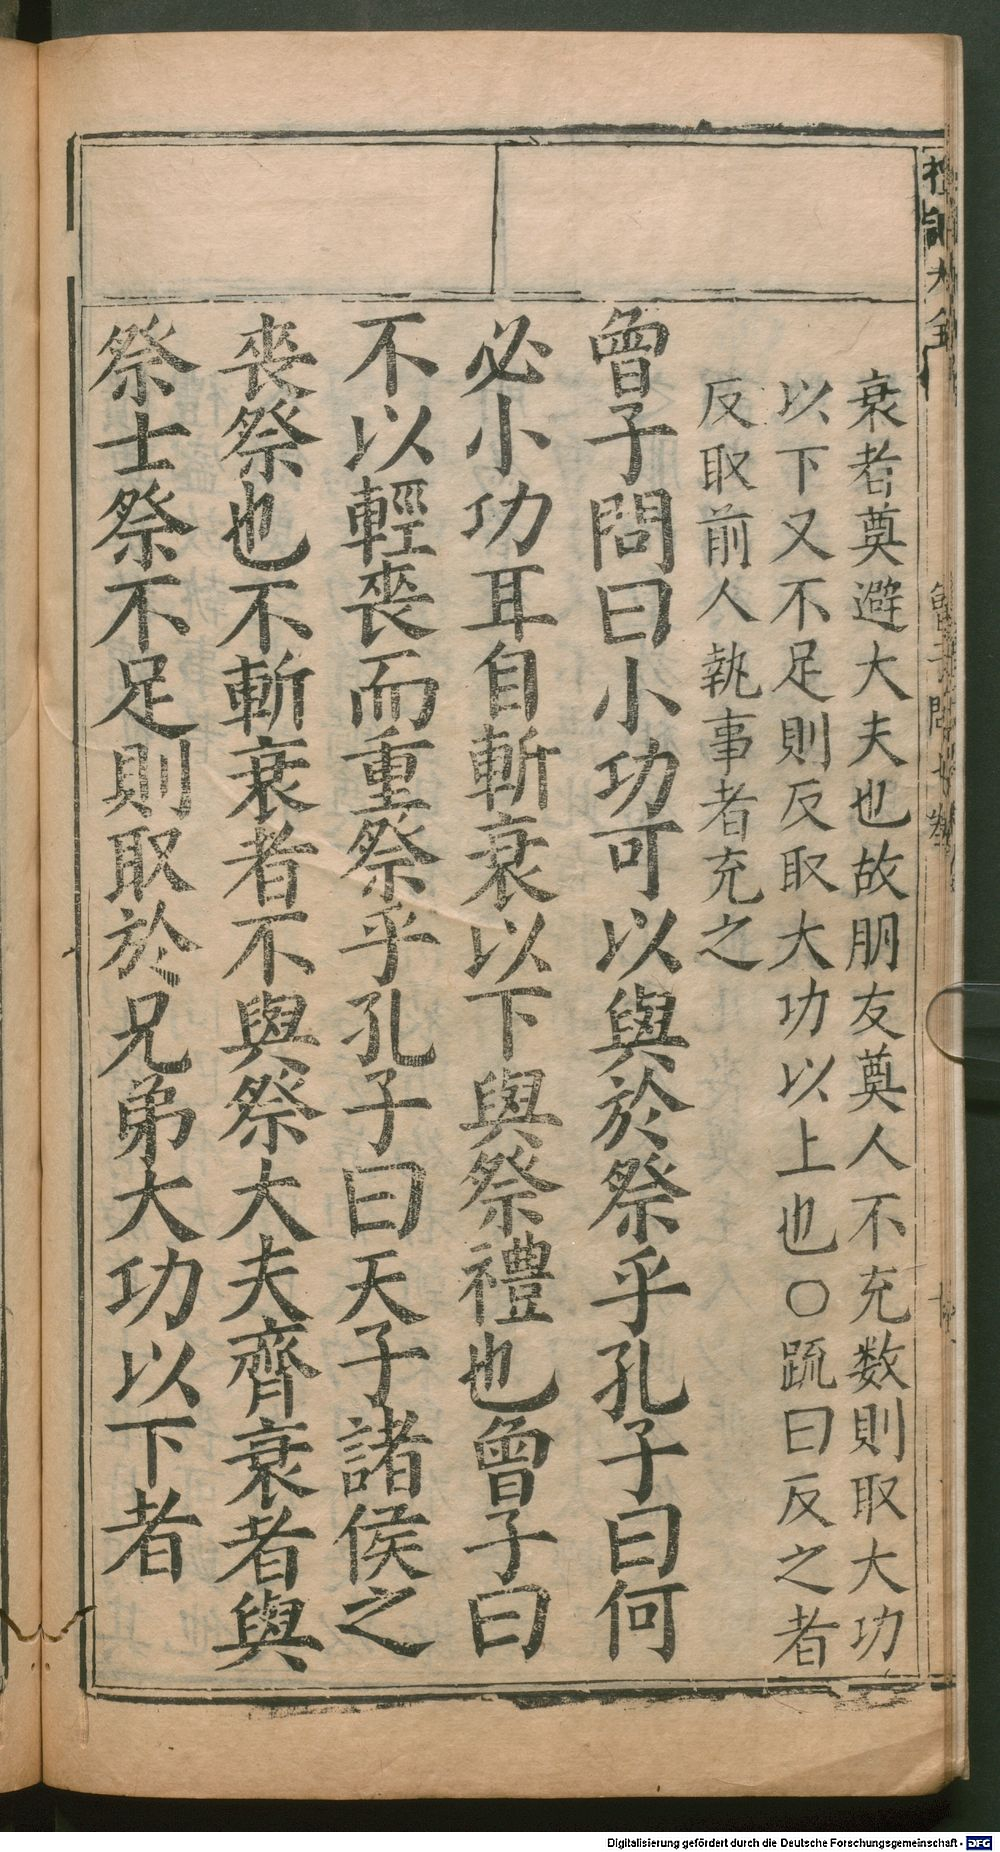 禮記大全
衰者奠避大夫也故朋友奠人不充数則取大功
以下又不足則反取大功以上也○䟽曰反之者
反取前人執事者充之
曾子問曰小功可以與於祭乎孔子曰何
必小功耳自斬衰以下與祭禮也曾子曰
不以輕喪而重祭乎孔子曰天子諸侯之
喪祭也不斬衰者不與祭大夫齊衰者與
祭士祭不足則取於兄弟大功以下者
Digitalisierung gefördert durch die Deutsche Forschungsgemeinschaft - DFG